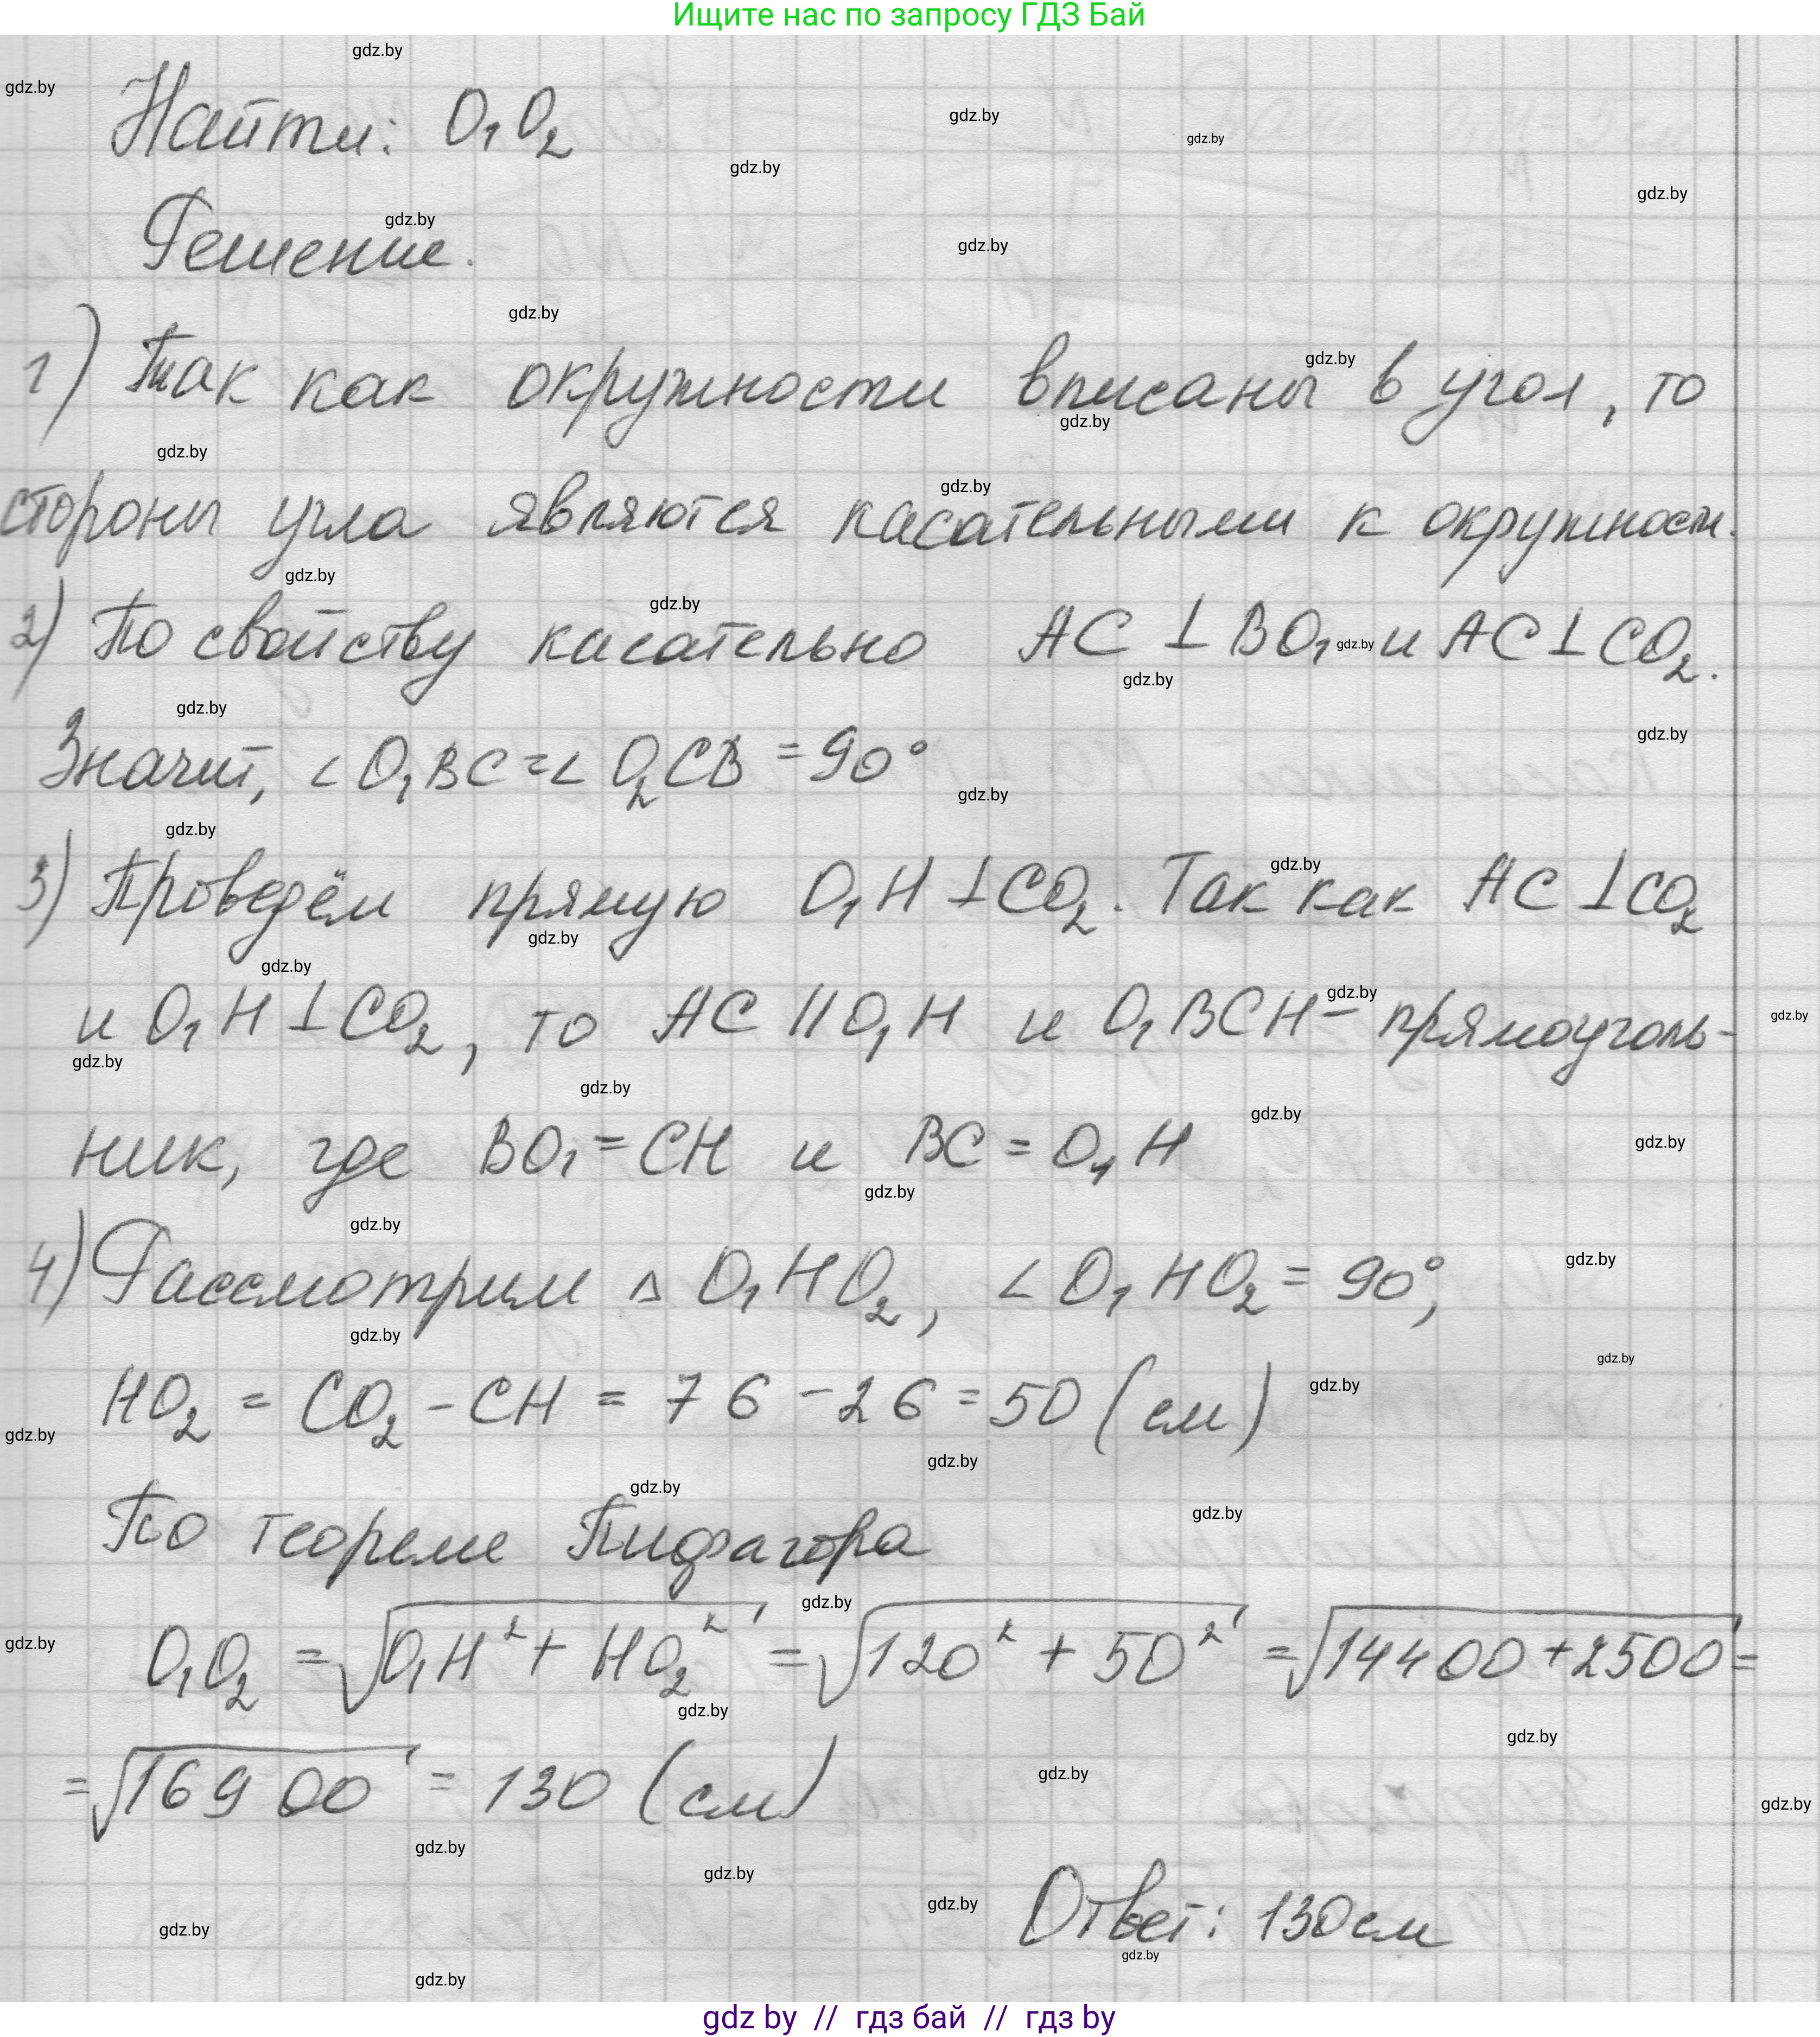 Ищите нас по запросу ГДЗ Бай
Найти: O₁O₂
Решение.
1) Так как окружности вписаны в угол, то
стороны угла являются касательными к окружности.
2) По свойству касательно AC ⊥ BO₁ и AC ⊥ CO₂.
Значит, ∠O₁BC = ∠O₂CB = 90°
3) Проведём прямую O₁H ⊥ CO₂. Так как AC ⊥ CO₂
и O₁H ⊥ CO₂, то AC || O₁H и O₁BCH - прямоуголь-
ник, где BO₁ = CH и BC = O₁H
4) Рассмотрим △ O₁HO₂, ∠O₁HO₂ = 90°,
HO₂ = CO₂ - CH = 76 - 26 = 50 (см)
По теореме Пифагора
O₁O₂ = √(O₁H² + HO₂²) = √(120² + 50²) = √(14400 + 2500) =
= √16900 = 130 (см)
Ответ: 130 см
gdz by // гдз бай // гдз by